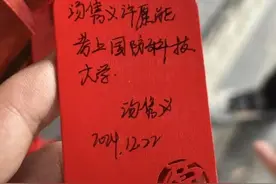 汤隽义许愿能
考上国防科技
大学
汤隽义
2024.12.22